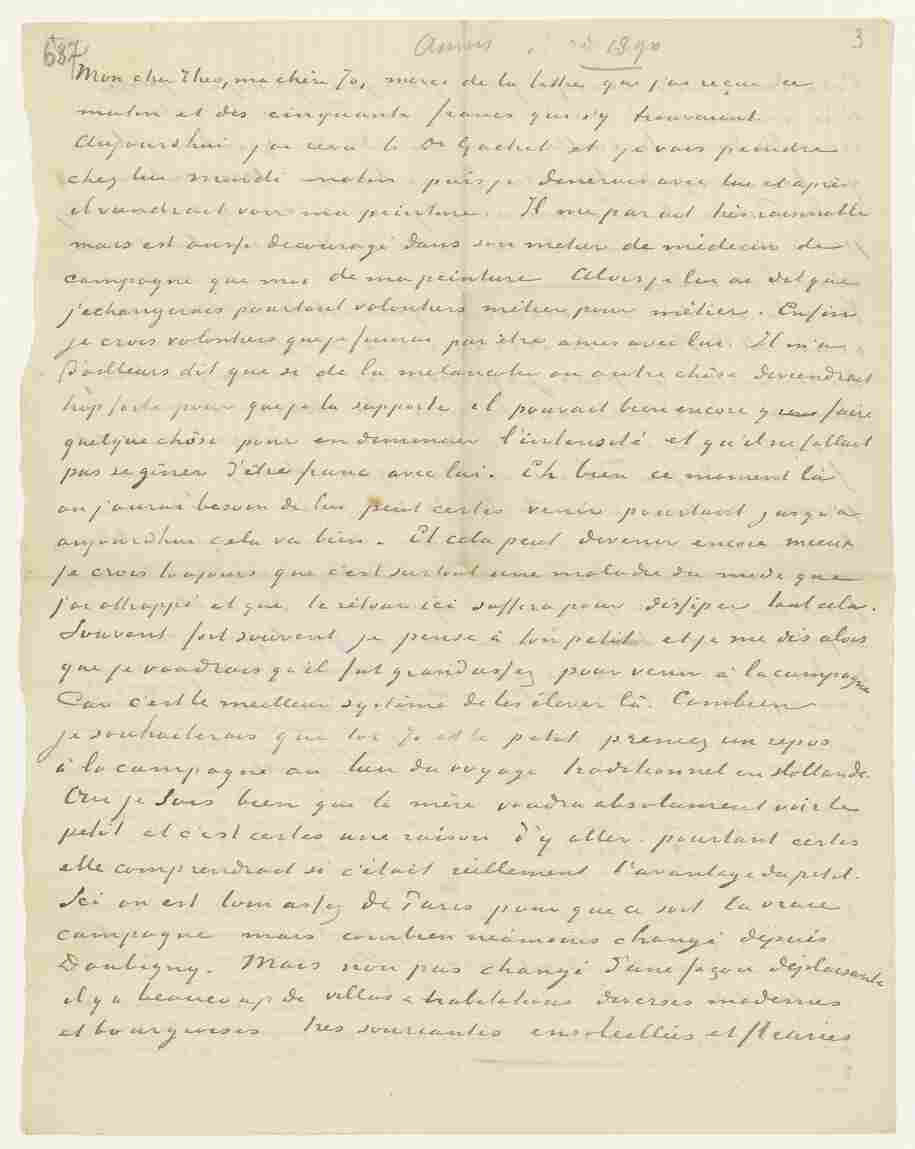 687 3
1890
Mon cher Theo, ma chère Jo, merci de ta lettre que j'ai reçue ce
matin et des cinquante francs qui s'y trouvaient.
Aujourdhui j'ai revu le Dr Gachet et je vais peindre
chez lui mardi matin puis je dinerais avec lui et après
il viendrait voir ma peinture. Il me parait très raisonable
mais est aussi decouragé dans son metier de médecin de
campagne que moi de ma peinture Alors je lui ai dit que
j'echangerais pourtant volontiers métier pour métier. Enfin
je crois volontiers que je finirai par être amis avec lui. Il m'a
d'ailleurs dit que si de la melancolie ou autre chôse deviendrait
trop forte pour que je la supporte il pouvait bien encore y faire
quelque chôse pour en diminuer l'intensité et qu'il ne fallait
pas se gêner d'être franc avec lui. Eh bien ce moment là
où j'aurai besoin de lui peut certes venir pourtant jusqu'à
aujourdhui cela va bien. Et cela peut devenir encore mieux
je crois toujours que c'est surtout une maladie du midi que
j'ai attrappé et que le retour ici suffira pour dissiper tout cela.
Souvent fort souvent je pense à ton petit et je me dis alors
que je voudrais qu'il fut grand assez pour venir à la campagne
Car c'est le meilleur système de les élever là. Combien
je souhaiterais que toi Jo et le petit prenez un repos
à la campagne au lieu du voyage traditionnel en Hollande.
Oui je sais bien que la mère voudra absolument voir le
petit et c'est certes une raison d'y aller. pourtant certes
elle comprendrait si c'était réellement l'avantage du petit.
Ici on est loin assez de Paris pour que ce soit la vraie
campagne mais combien néamoins changé depuis
Daubigny. Mais non pas changé d'une façon déplaisante
il y a beaucoup de villas & habitations diverses modernes
et bourgeoises très souriantes ensoleillées et fleuries